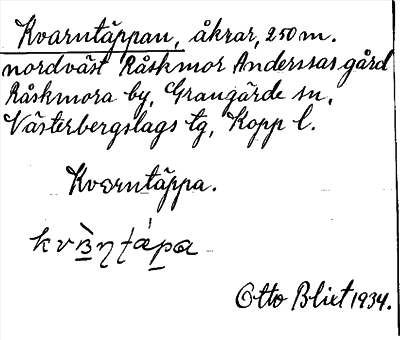 Kvarntäppan, åkrar, 250 m.
nordväst Råskmor Anderssas gård
Råskmora by, Grangärde sn,
Västerbergslags tg, Kopp l.
Kvarntäppa.
Otto Blixt 1934.